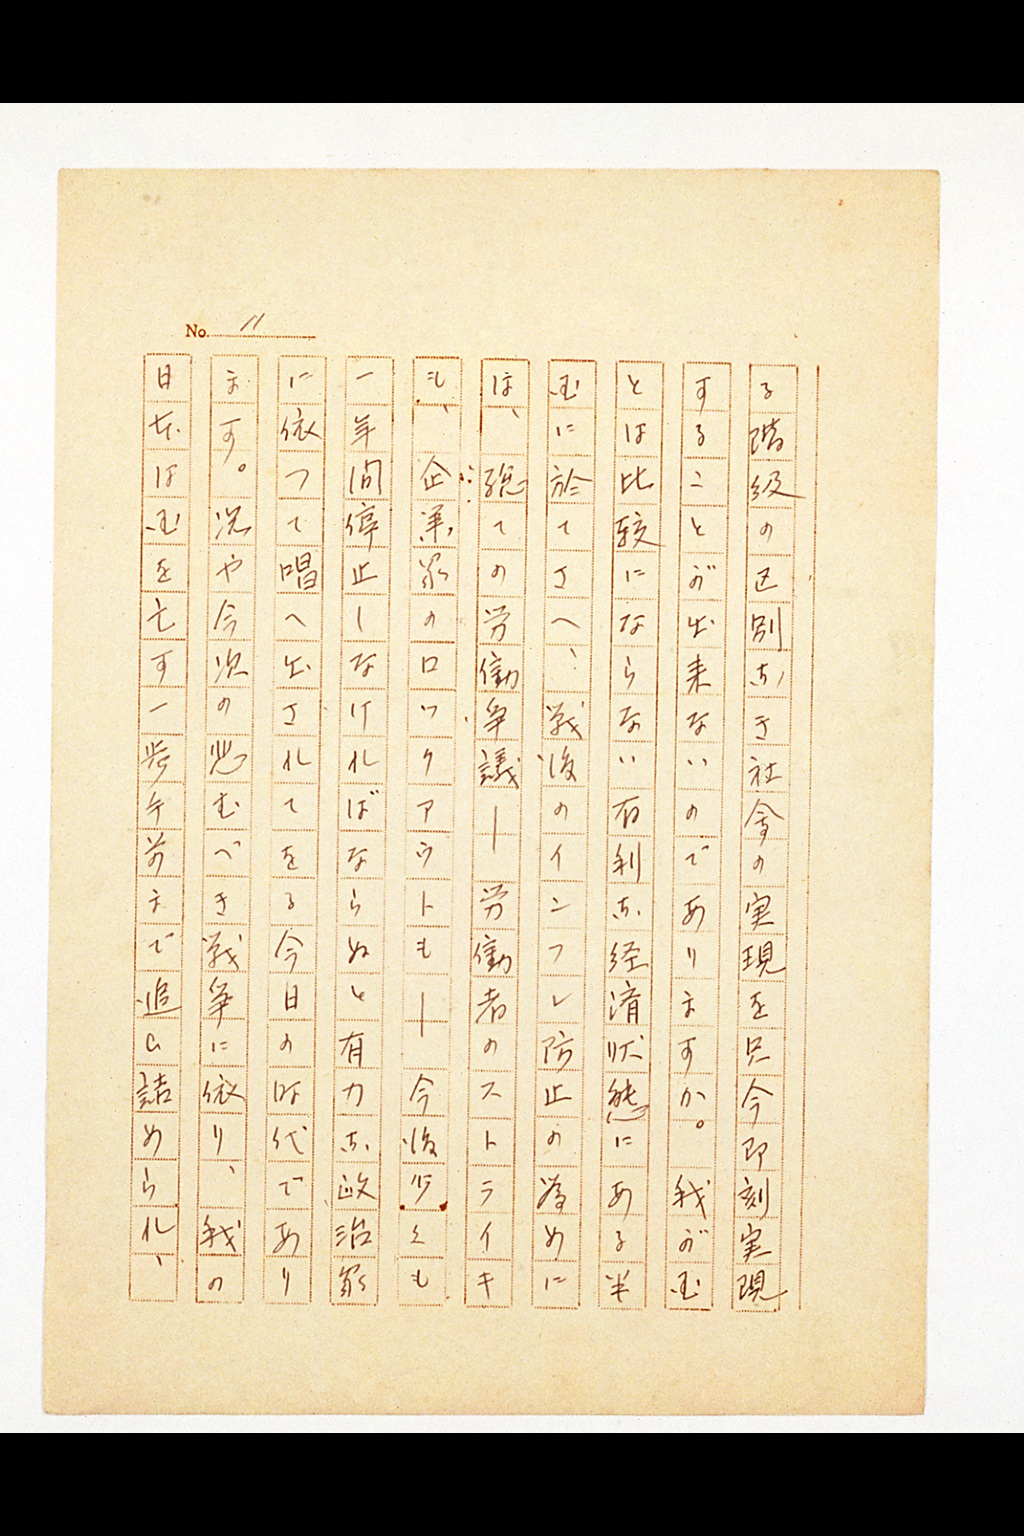 No. 11
る階級の区別なき社会の実現を只今即刻実現
することが出来ないのでありますか。我が国
とは比較にならない有利な経済状態にある米
国に於てさへ、戦後のインフレ防止の為めに
は、総ての労働争議―労働者のストライキ
も、企業家のロックアウトも―今後少くも
一年間停止しなければならぬと有力な政治家
に依つて唱へ出されてをる今日の時代であり
ます。況や今次の悲むべき戦争に依り、我の
日本は国を亡す一歩手前まで追ひ詰められ、